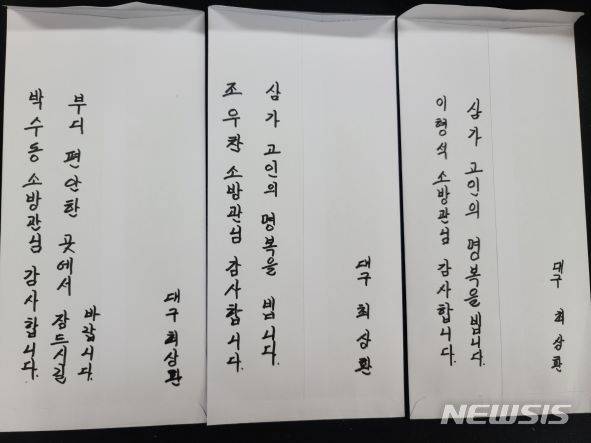 부디 편안한 곳에서 잠드시길
바랍니다.
박수동 소방관님 감사합니다.
대구 최상환
삼가 고인의 명복을 빕니다.
조우찬 소방관님 감사합니다.
대구 최상환
삼가 고인의 명복을 빕니다.
이형석 소방관님 감사합니다.
대구 최상환
NEWSIS